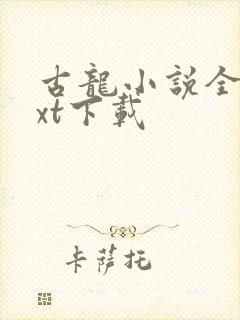 古龍小説全
xt下載
卡薩托